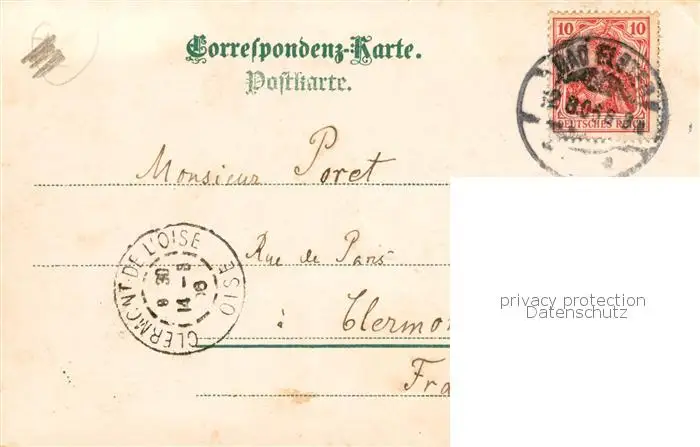 Correspondenz-Karte.
Postkarte.
10 10
DEUTSCHES REICH
BAD
Monsieur Poret
Rue de Paris
à Clermon
Fra
CLERMONT DE L'OISE
OISE
8 30
14 -8
privacy protection
Datenschutz